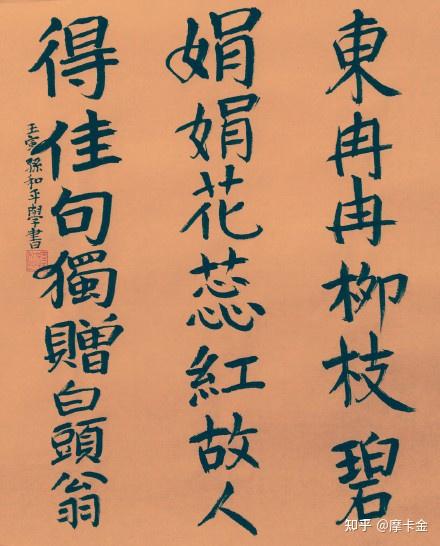 東冉冉柳枝碧
娟娟花蕊紅故人
得佳句獨贈白頭翁
壬寅孫和平學書
知乎 @摩卡金